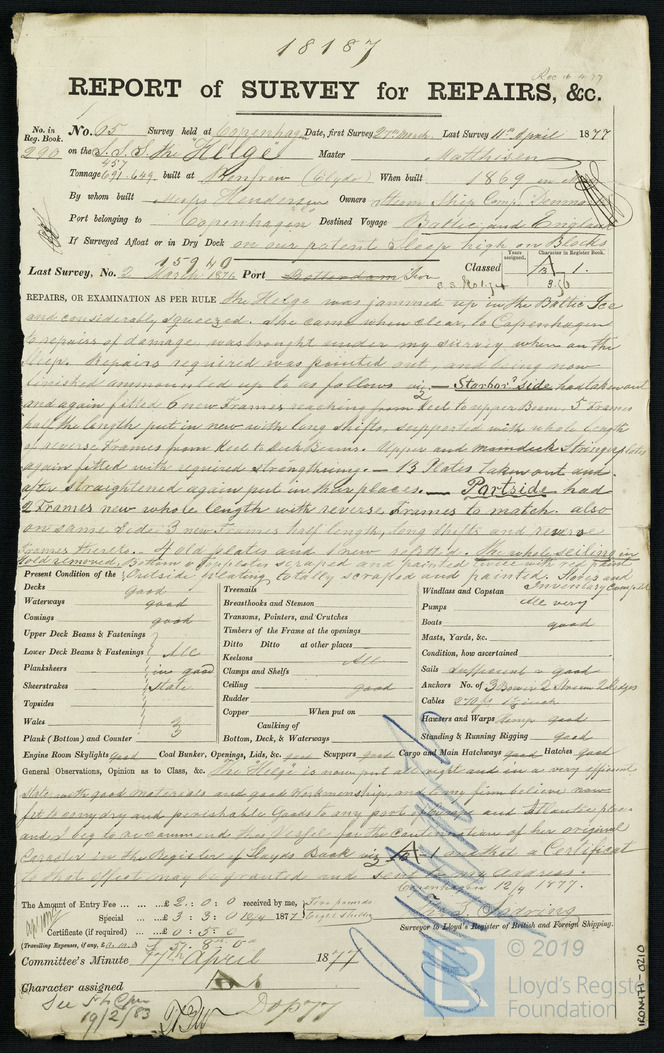 18187
Rec 16.4.77
REPORT of SURVEY for REPAIRS, &c.
No. in Reg. Book. 290
No. 65 Survey held at Copenhagen Date, first Survey 27th March Last Survey 11th April 1877
on the S.S.S. the "Helge" Master Matthisen
Tonnage 457 691.649 built at Renfrew (Clyde) When built 1869
By whom built Messrs Henderson Owners Steam Ship Comp.
Port belonging to Copenhagen Destined Voyage Baltic and England
If Surveyed Afloat or in Dry Dock on our patent Sleep high on Blocks
15940
Last Survey, No. 2 March 1876 Port Rotterdam Iron Classed
Years assigned. Character in Register Book.
A 1.
S.S. No 1
REPAIRS, OR EXAMINATION AS PER RULE the Helge was jammed up in the Baltic Ice
and considerably squeezed. She came when clear, to Copenhagen
to repairs of damage was brought under my survey when on the
Sleep. Repairs required was pointed out, and being now
finished ammounted up to as follows viz — Starbord Side had taken out
and again fitted 6 new Frames reaching from Keel to upper Beam, 5 Frames
half the length put in new with long Shifts, supported with whole length
of reverse Frames from Keel to Deck Beams. Upper and maindeck Stringerplates
again fitted with required strengthning. — 13 Plates taken out and
after straightened again put in thar places. — Portside had
2 Frames new whole length with reverse Frames to match. also
on same side 3 new Frames half length, long Shifts and reverse
Frames thereto. 4 old plates and 1 new refitted. The whole seiling in
Hold removed, Bottom plates scraped and painted twice with red paint
Outside plating totally scraped and painted. Stores and
Inventary Complett
Present Condition of the
Decks good
Waterways good
Comings good
Upper Deck Beams & Fastenings
Lower Deck Beams & Fastenings All
Planksheers in good
Sheerstrakes state
Topsides
Wales
Plank (Bottom) and Counter
Treenails
Breasthooks and Stemson
Transoms, Pointers, and Crutches
Timbers of the Frame at the openings
Ditto Ditto at other places
Keelsons All
Clamps and Shelfs
Ceiling good
Rudder
Copper When put on
Caulking of
Bottom, Deck, & Waterways
Windlass and Capstan
Pumps All very
Boats good
Masts, Yards, &c.
Condition, how ascertained
Sails sufficient & good
Anchors No. of 3 Bower 2 Stream 2 Kedges
Cables 270 fs 1½ inch
Hawsers and Warps Hemp good
Standing & Running Rigging good
Engine Room Skylights good Coal Bunker, Openings, Lids, &c. good Scuppers good Cargo and Main Hatchways good Hatches good
General Observations, Opinion as to Class, &c. The "Helge" is now put all right and in a very efficient
State, with good Materials and good Workmanship, and I my firm believe now
fit to carry dry and perishable Goods to any port of Europe and Atlantic place
and I beg to recommends this Vessel for the Continuation of her original
Carracter in the Register of Lloyds Book viz A 1 makt a Certificat
to that effect may be granted and send to my address.
Copenhagen 12/4 1877.
The Amount of Entry Fee £ 2 : 0 : 0 received by me,
Special £ 3 : 3 : 0 16/4 1877
Certificate (if required) £ 0 : 5 : 0
(Travelling Expenses, if any, £ ) £ 5 : 8 : 0
Surveyor to Lloyd's Register of British and Foreign Shipping.
Committee's Minute 17th April 1877
Character assigned A 1
19/2/83
© 2019
Lloyd's Register
Foundation
IRON477-0210